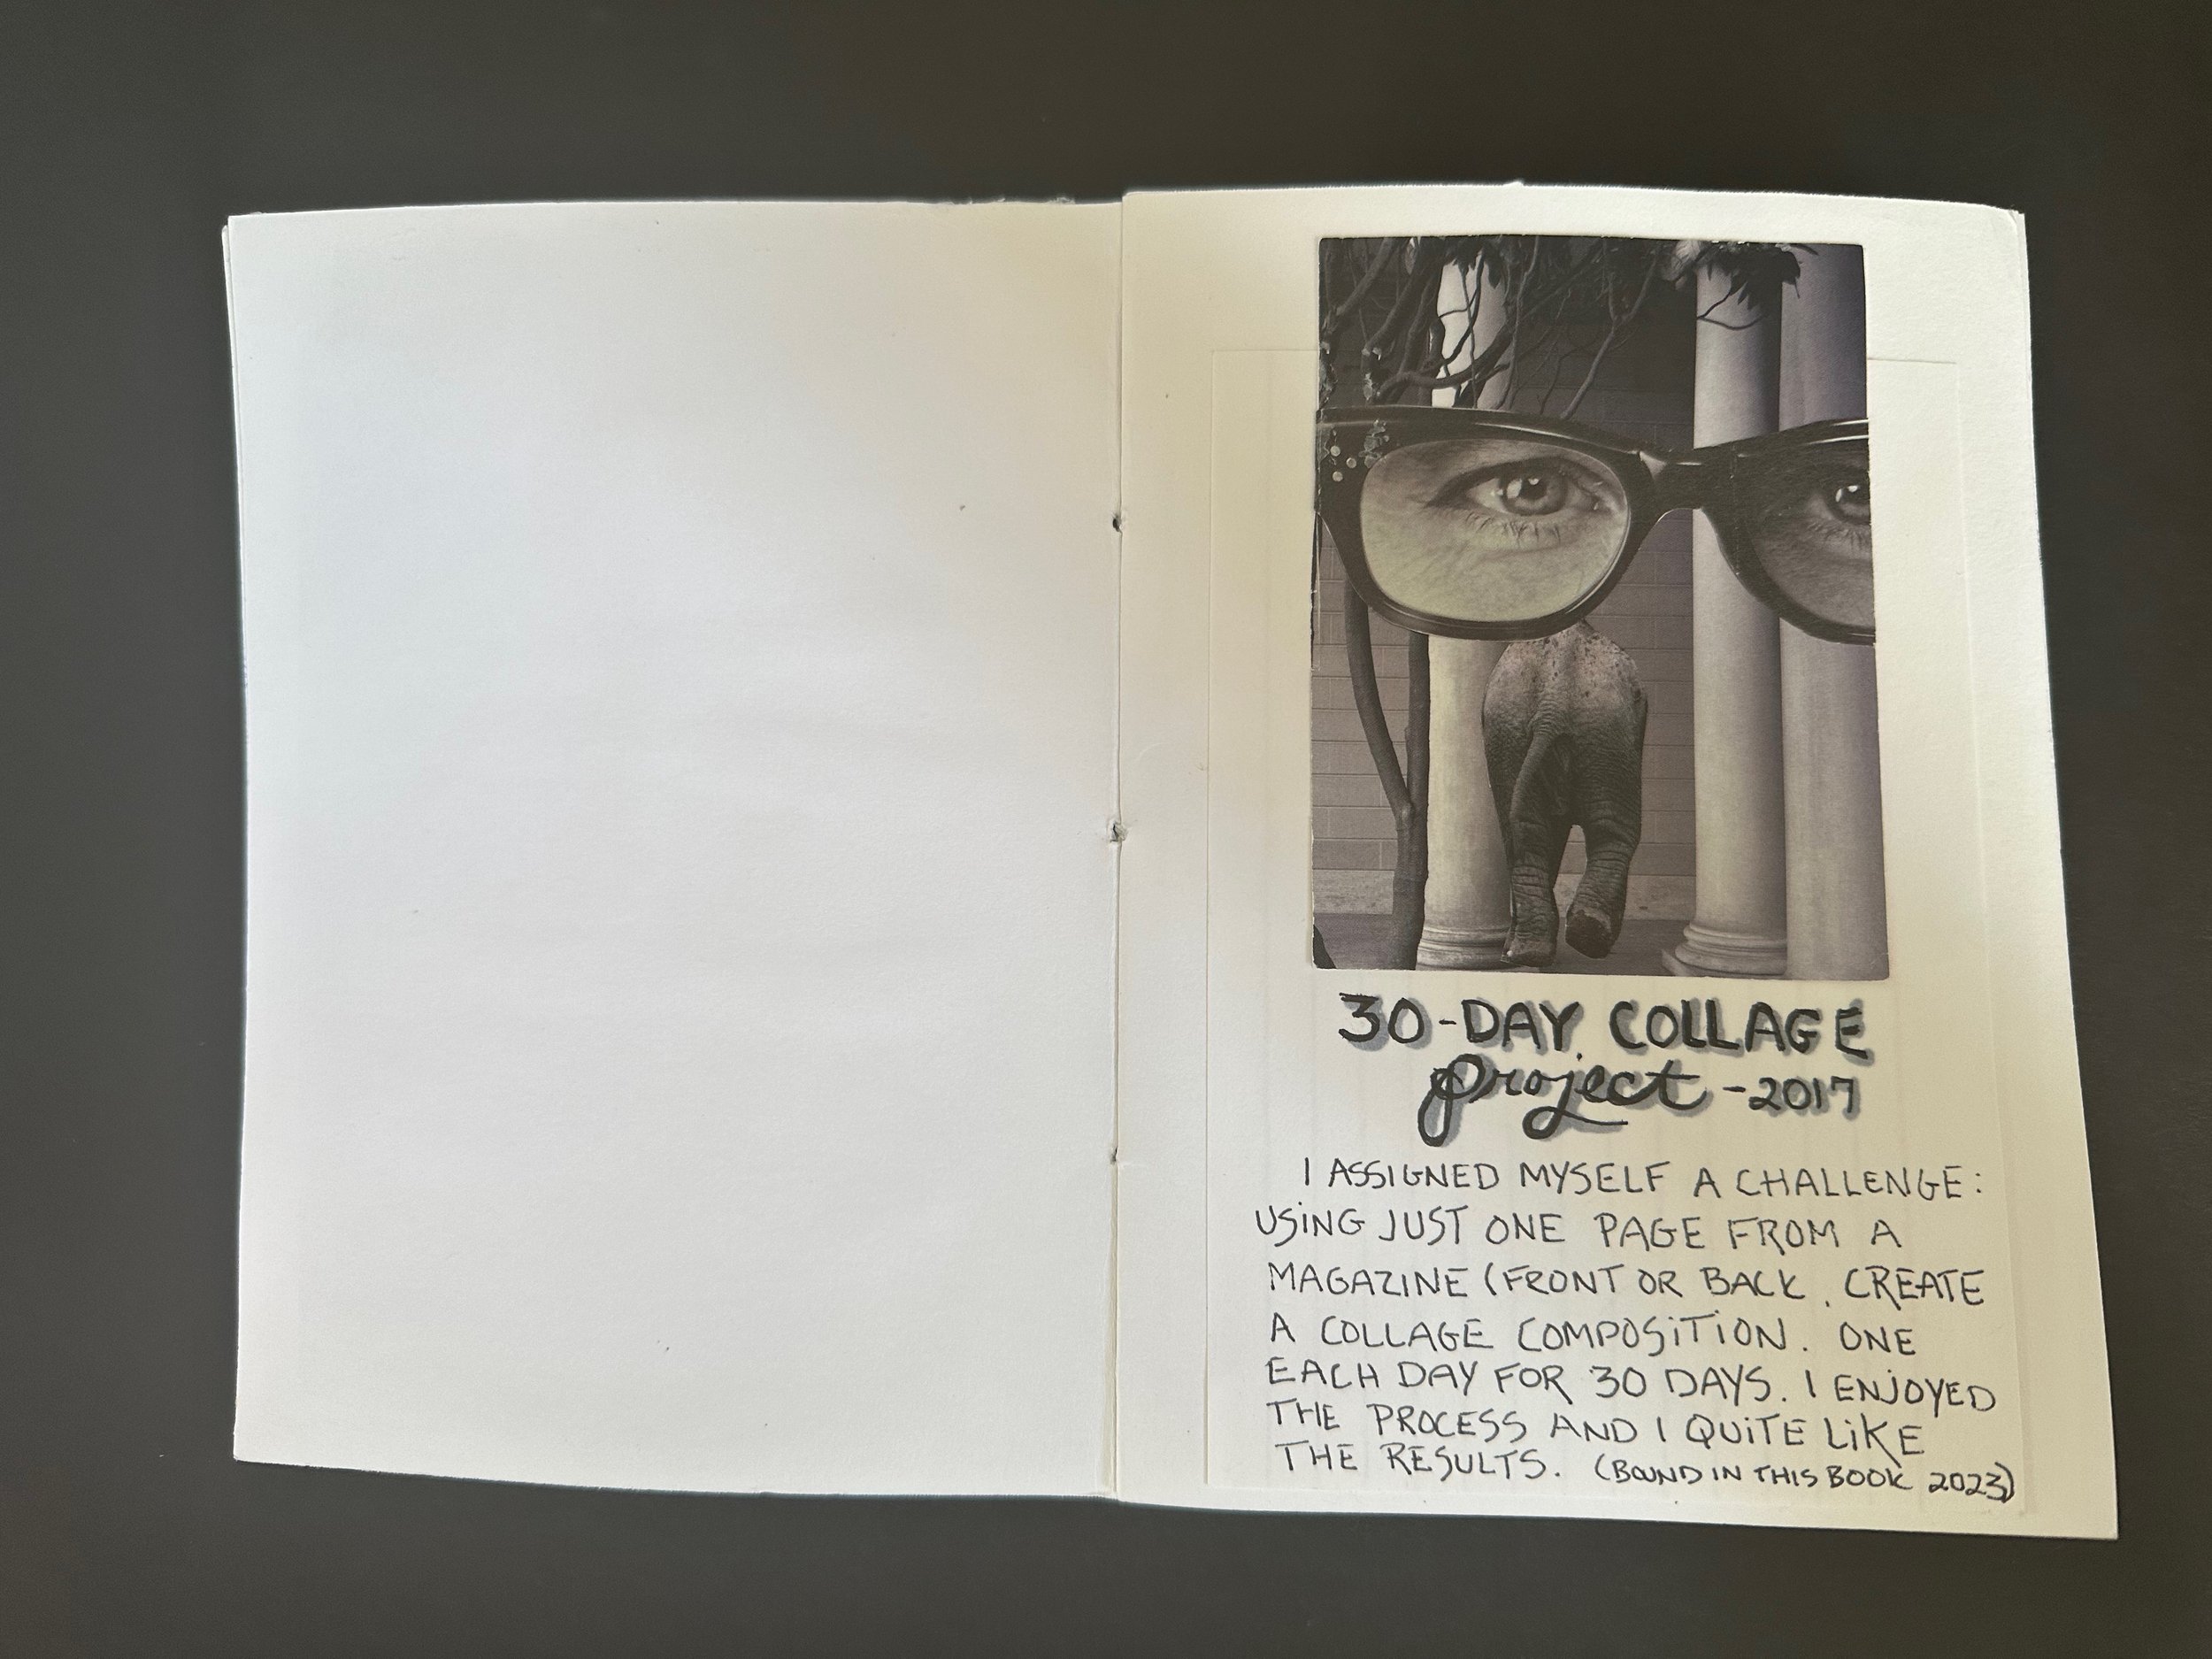 30-DAY COLLAGE
project -2017
I ASSIGNED MYSELF A CHALLENGE:
USING JUST ONE PAGE FROM A
MAGAZINE (FRONT OR BACK, CREATE
A COLLAGE COMPOSITION. ONE
EACH DAY FOR 30 DAYS. I ENJOYED
THE PROCESS AND I QUITE LIKE
THE RESULTS. (BOUND IN THIS BOOK 2023)